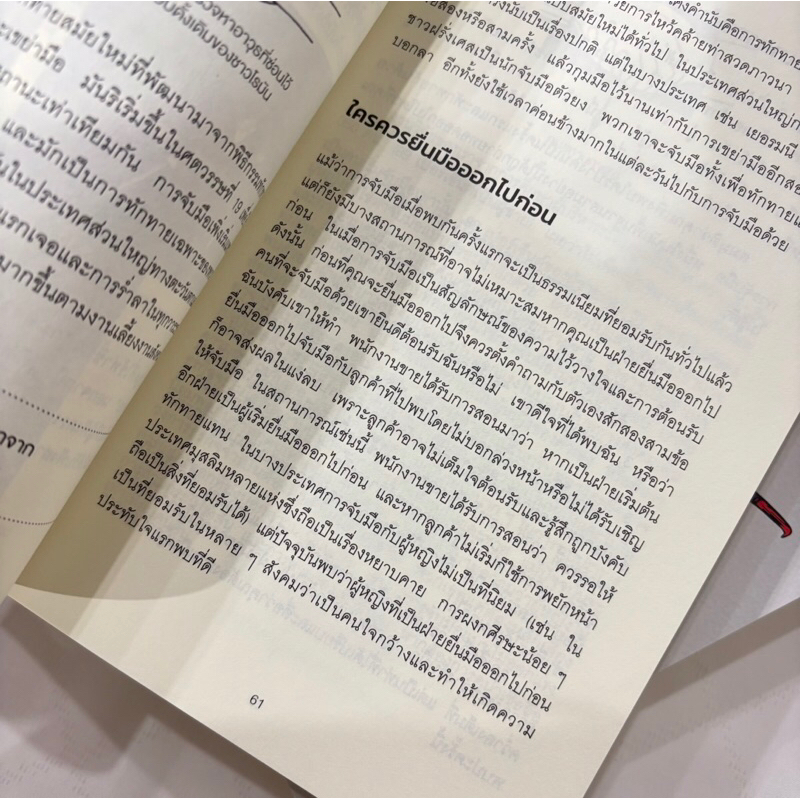 องหาอาวุธที่ซ่อนไว้
นดั้งเดิมของชาวโรมัน
ทายสมัยใหม่ที่พัฒนามาจากพิธีกรรม
ะเขย่ามือ มันริเริ่มขึ้นในศตวรรษที่ 19
ถานะเท่าเทียมกัน การจับมือเพิ่ง
และมักเป็นการทักทายเฉพาะของ
นในประเทศส่วนใหญ่ทางตะวันตก
แรกเจอและการร่ำลาในทุก
มากขึ้นตามงานเลี้ยงงาน
จาก
คำนับคือการทักทาย
วยการไหว้คล้ายท่าสวดภาวนา
แบบสมัยใหม่ได้ทั่วไป ในประเทศส่วนใหญ่
วงนับเป็นเรื่องปกติ แต่ในบางประเทศ เช่น เยอรมนี
ยสองหรือสามครั้ง แล้วกุมมือไว้นานเท่ากับการเขย่ามืออีก
ชาวฝรั่งเศสเป็นนักจับมือตัวยง พวกเขาจะจับมือทั้งเพื่อทักทาย
บอกลา อีกทั้งยังใช้เวลาค่อนข้างมากในแต่ละวันไปกับการจับมือด้วย
ใครควรยื่นมือออกไปก่อน
แม้ว่าการจับมือเมื่อพบกันครั้งแรกจะเป็นธรรมเนียมที่ยอมรับกันทั่วไปแล้ว
แต่ก็ยังมีบางสถานการณ์ที่อาจไม่เหมาะสมหากคุณเป็นฝ่ายยื่นมือออกไป
ก่อน ในเมื่อการจับมือเป็นสัญลักษณ์ของความไว้วางใจและการต้อนรับ
ดังนั้น ก่อนที่คุณจะยื่นมือออกไปจึงควรตั้งคำถามกับตัวเองสักสองสามข้อ
คนที่จะจับมือด้วยเขายินดีต้อนรับฉันหรือไม่ เขาดีใจที่ได้พบฉัน หรือว่า
ฉันบังคับเขาให้ทำ พนักงานขายได้รับการสอนมาว่า หากเป็นฝ่ายเริ่มต้น
ยื่นมือออกไปจับมือกับลูกค้าที่ไปพบโดยไม่บอกล่วงหน้าหรือไม่ได้รับเชิญ
ก็อาจส่งผลในแง่ลบ เพราะลูกค้าอาจไม่เต็มใจต้อนรับและรู้สึกถูกบังคับ
ให้จับมือ ในสถานการณ์เช่นนี้ พนักงานขายได้รับการสอนว่า ควรรอให้
อีกฝ่ายเป็นผู้เริ่มยื่นมือออกไปก่อน และหากลูกค้าไม่เริ่มก็ใช้การพยักหน้า
ทักทายแทน ในบางประเทศการจับมือกับผู้หญิงไม่เป็นที่นิยม (เช่น ใน
ประเทศมุสลิมหลายแห่งซึ่งถือเป็นเรื่องหยาบคาย การผงกศีรษะน้อย ๆ
ถือเป็นสิ่งที่ยอมรับได้) แต่ปัจจุบันพบว่าผู้หญิงที่เป็นฝ่ายยื่นมือออกไปก่อน
เป็นที่ยอมรับในหลาย ๆ สังคมว่าเป็นคนใจกว้างและทำให้เกิดความ
ประทับใจแรกพบที่ดี
61